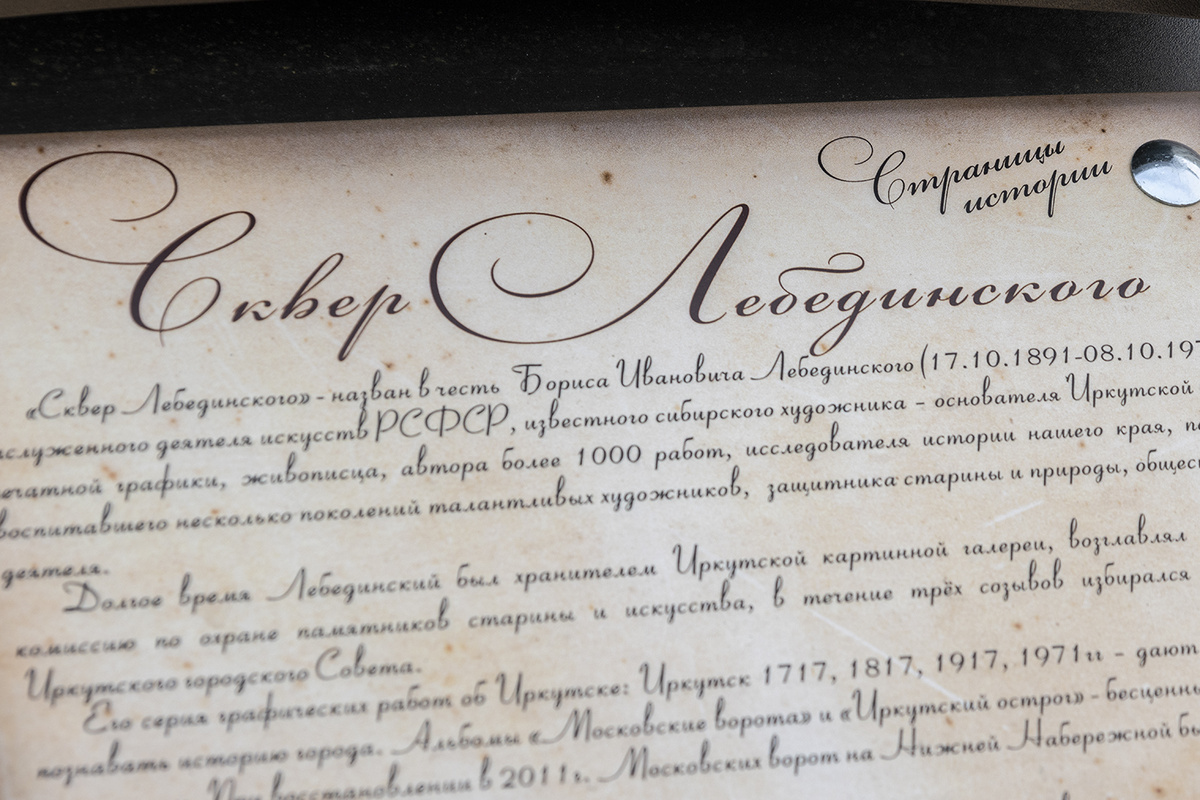 Страницы
истории
Сквер Лебединского
«Сквер Лебединского» - назван в честь Бориса Ивановича Лебединского (17.10.1891-08.10.197
служенного деятеля искусств РСФСР, известного сибирского художника - основателя Иркутской
ечатной графики, живописца, автора более 1000 работ, исследователя истории нашего края,
воспитавшего несколько поколений талантливых художников, защитника старины и природы, общес
деятеля.
Долгое время Лебединский был хранителем Иркутской картинной галереи, возглавлял
комиссию по охране памятников старины и искусства, в течение трёх созывов избирался
Иркутского городского Совета.
Его серия графических работ об Иркутске: Иркутск 1717, 1817, 1917, 1971гг - дают
познавать историю города. Альбомы «Московские ворота» и «Иркутский острог» - бесценны
При восстановлении в 2011г. Московских ворот на Нижней Набережной бы